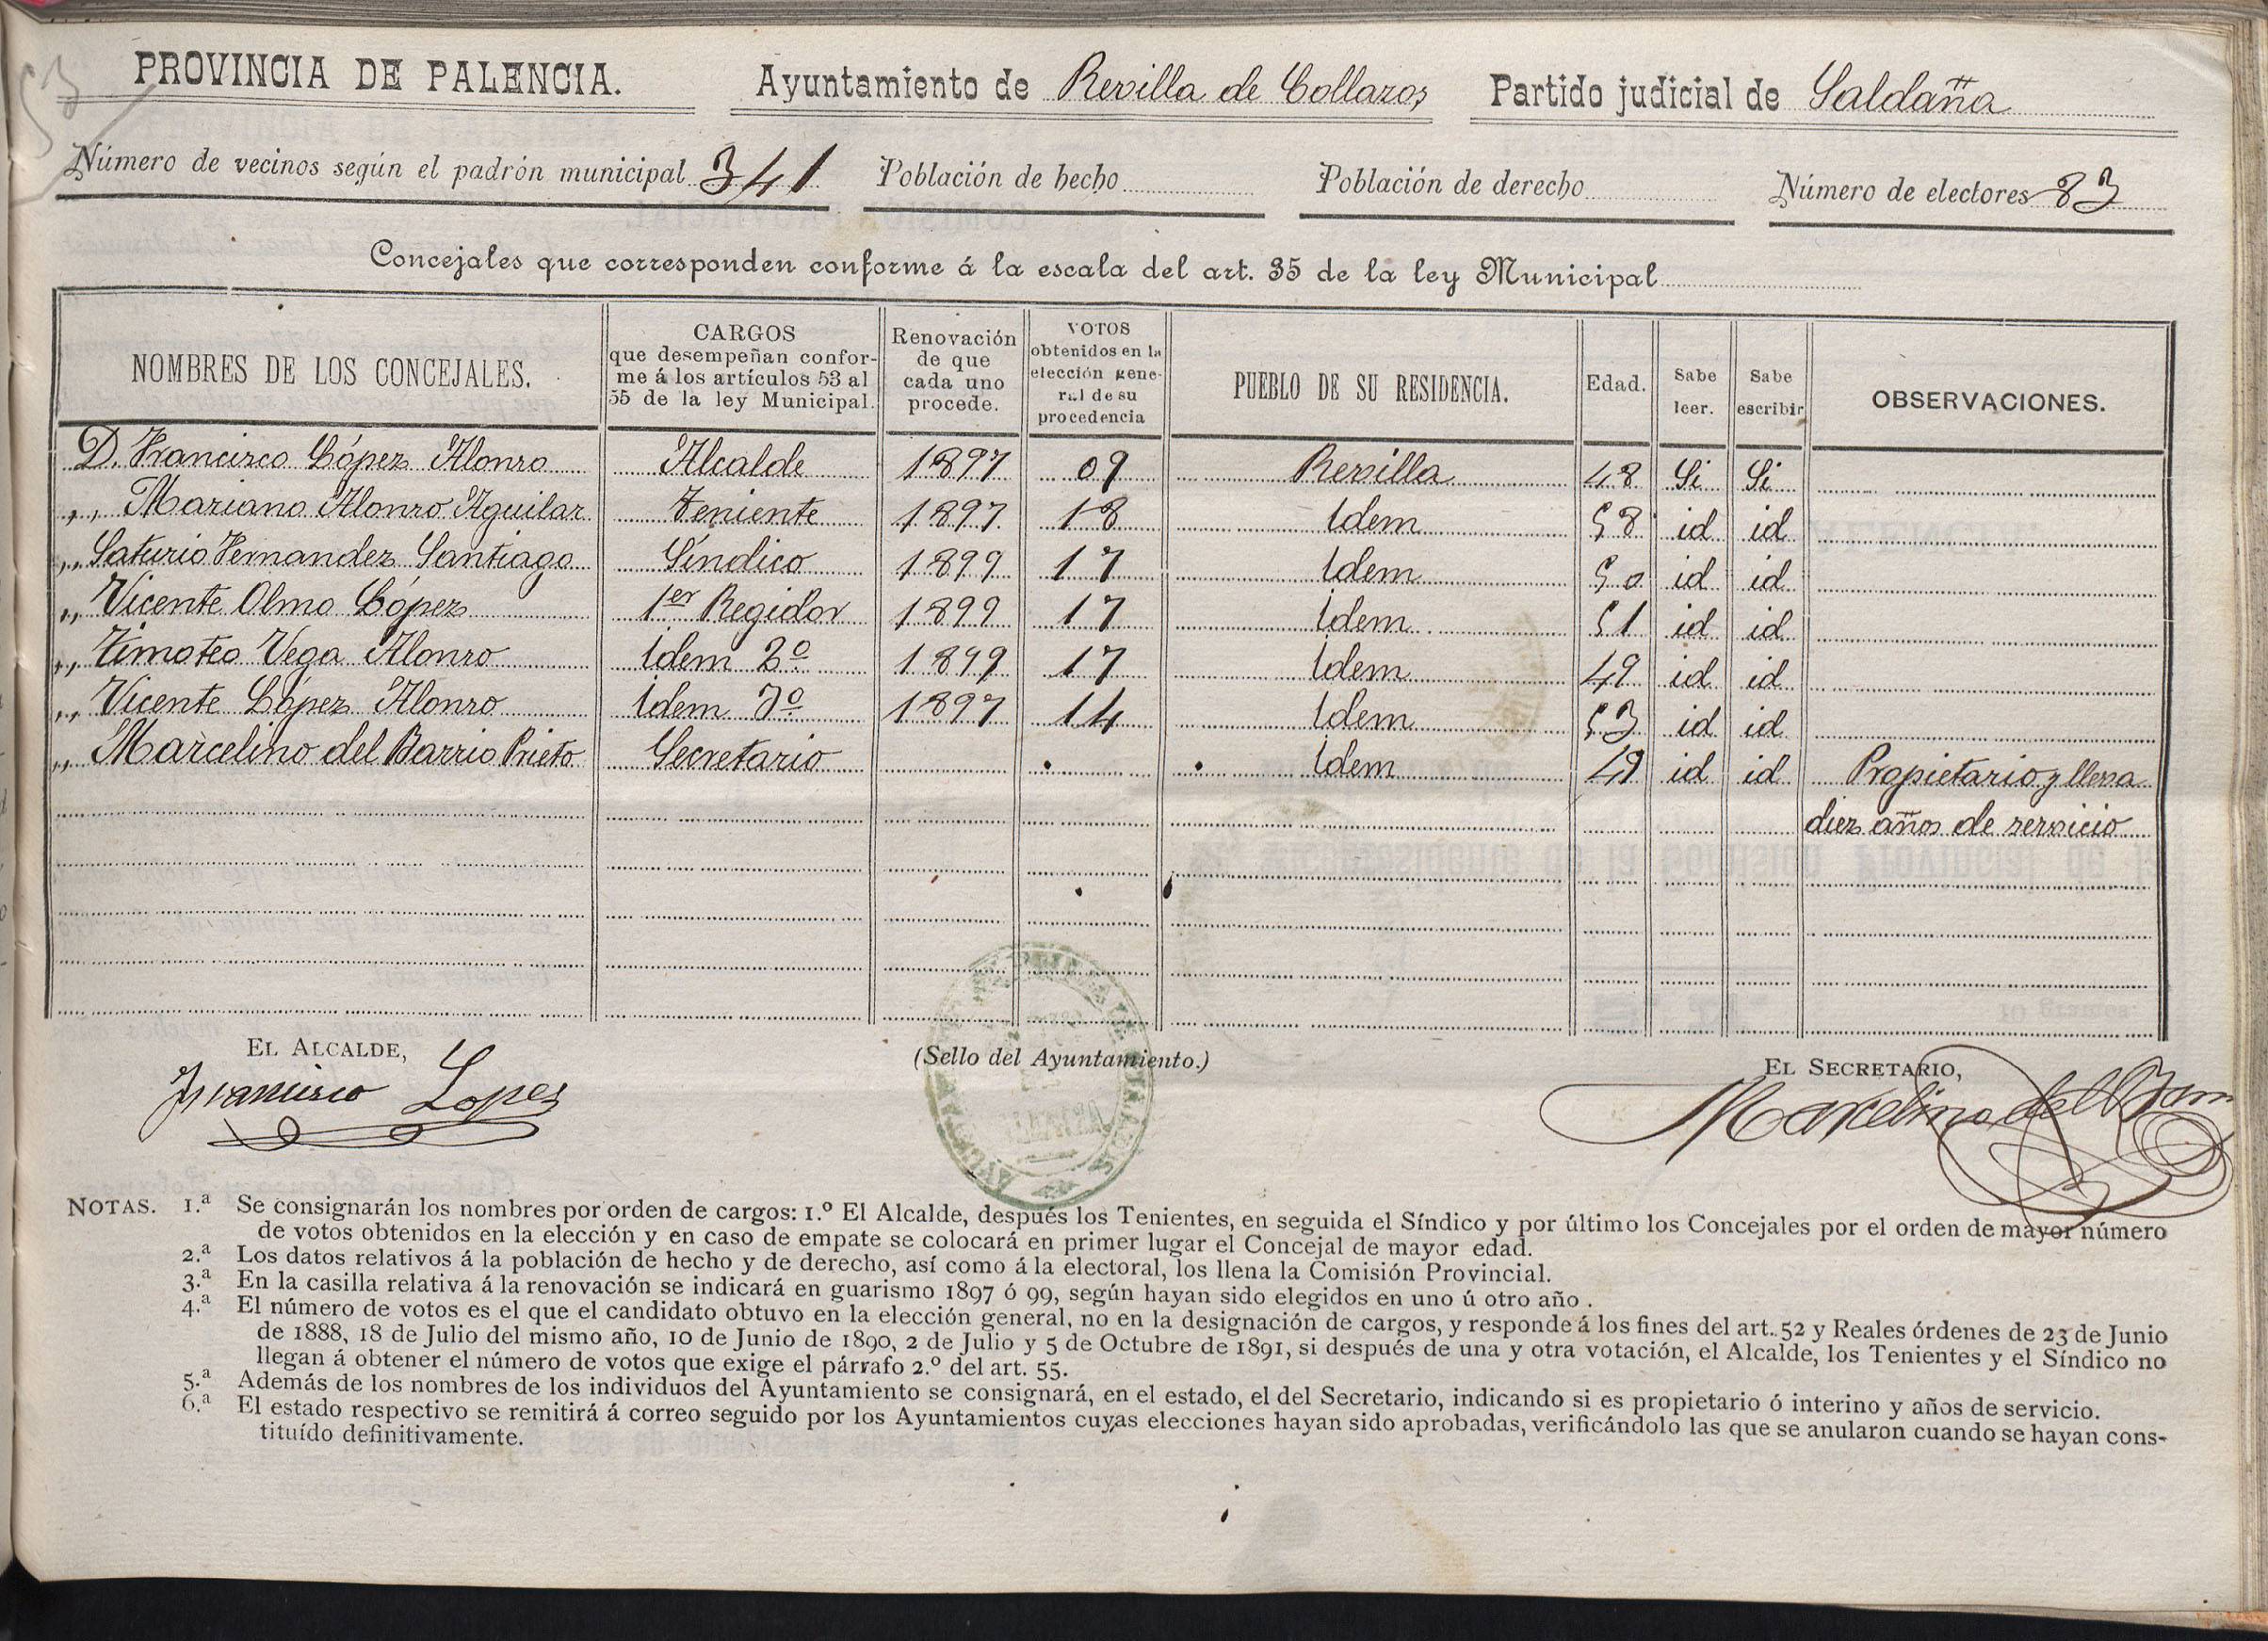 53
PROVINCIA DE PALENCIA. Ayuntamiento de Revilla de Collazos Partido judicial de Saldaña
Número de vecinos según el padrón municipal 341 Población de hecho Población de derecho Número de electores 83
Concejales que corresponden conforme á la escala del art. 35 de la ley Municipal
NOMBRES DE LOS CONCEJALES. CARGOS que desempeñan conforme á los artículos 53 al 55 de la ley Municipal. Renovación de que cada uno procede. VOTOS obtenidos en la elección general de su procedencia PUEBLO DE SU RESIDENCIA. Edad. Sabe leer. Sabe escribir OBSERVACIONES.
D. Francisco López Alonso Alcalde 1897 09 Revilla 48 Si Si
,, Mariano Alonso Aguilar Teniente 1897 18 Idem 58 id id
,, Saturio Fernandez Santiago Síndico 1899 17 Idem 50 id id
,, Vicente Olmo López 1er Regidor 1899 17 Idem 51 id id
,, Timoteo Vega Alonso Idem 2º 1899 17 Idem 49 id id
,, Vicente López Alonso Idem 3º 1897 14 Idem 53 id id
,, Marcelino del Barrio Prieto Secretario Idem 49 id id Propietario y lleva
diez años de servicio
EL ALCALDE, (Sello del Ayuntamiento.) EL SECRETARIO,
Francisco Lopez Marcelino del Barrio
NOTAS. 1.ª Se consignarán los nombres por orden de cargos: 1.º El Alcalde, después los Tenientes, en seguida el Síndico y por último los Concejales por el orden de mayor número
de votos obtenidos en la elección y en caso de empate se colocará en primer lugar el Concejal de mayor edad.
2.ª Los datos relativos á la población de hecho y de derecho, así como á la electoral, los llena la Comisión Provincial.
3.ª En la casilla relativa á la renovación se indicará en guarismo 1897 ó 99, según hayan sido elegidos en uno ú otro año.
4.ª El número de votos es el que el candidato obtuvo en la elección general, no en la designación de cargos, y responde á los fines del art. 52 y Reales órdenes de 23 de Junio
de 1888, 18 de Julio del mismo año, 10 de Junio de 1890, 2 de Julio y 5 de Octubre de 1891, si después de una y otra votación, el Alcalde, los Tenientes y el Síndico no
llegan á obtener el número de votos que exige el párrafo 2.º del art. 55.
5.ª Además de los nombres de los individuos del Ayuntamiento se consignará, en el estado, el del Secretario, indicando si es propietario ó interino y años de servicio.
6.ª El estado respectivo se remitirá á correo seguido por los Ayuntamientos cuyas elecciones hayan sido aprobadas, verificándolo las que se anularon cuando se hayan cons-
tituído definitivamente.